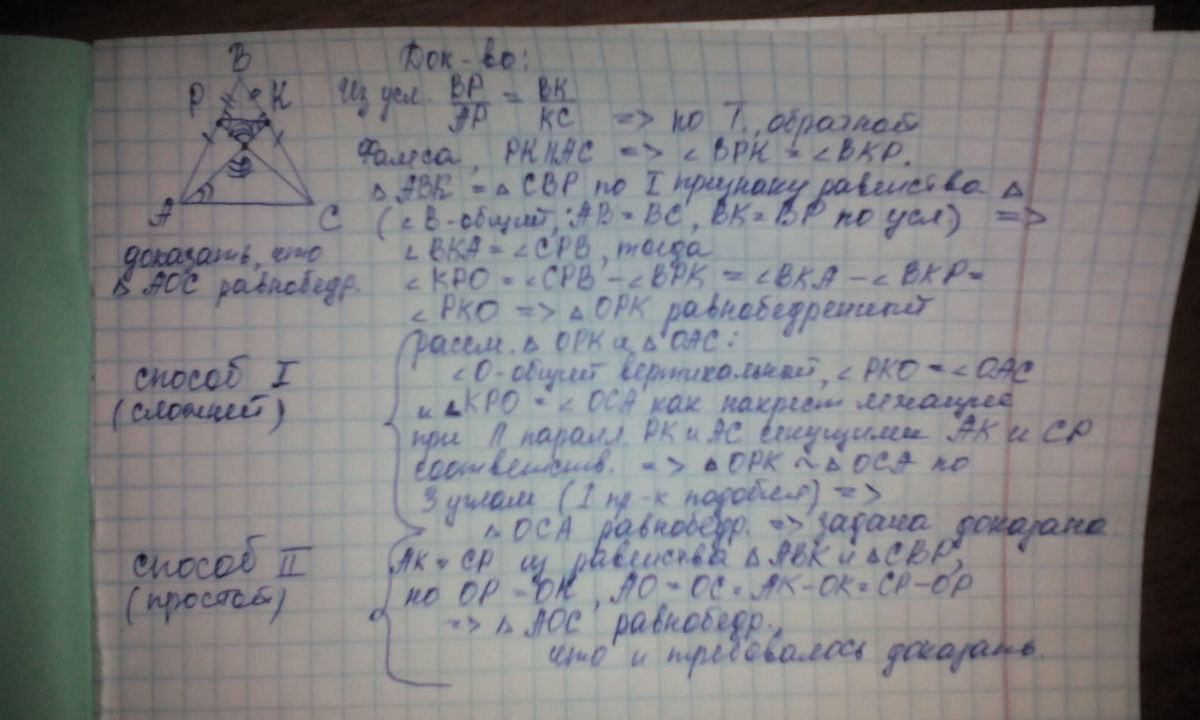 B
Док-во:
P K
Из усл. BP/AP = BK/KC => по Т, обратной
Фалеса, PK||AC => ∠BPK = ∠BKP.
△ABK = △CBP по I признаку равенства △
A C
(∠B-общий, AB = BC, BK = BP по усл) =>
доказать, что
△AOC равнобедр.
∠BKA = ∠CPB, тогда
∠KPO = ∠CPB - ∠BPK = ∠BKA - ∠BKP =
∠PKO => △OPK равнобедренный
способ I
(сложней)
рассм. △OPK и △OAC:
∠O-общий вертикальный, ∠PKO = ∠OAC
и ∠KPO = ∠OCA как накрест лежащие
при паралл. PK и AC секущими AK и CP
соответств. => △OPK ~ △OCA по
3 углам (I пр-к подобия) =>
△OCA равнобедр. => задача доказана.
способ II
(простой)
AK = CP из равенства △ABK и △CBP,
но OP = OK, AO = OC = AK-OK = CP-OP
=> △AOC равнобедр.,
что и требовалось доказать.